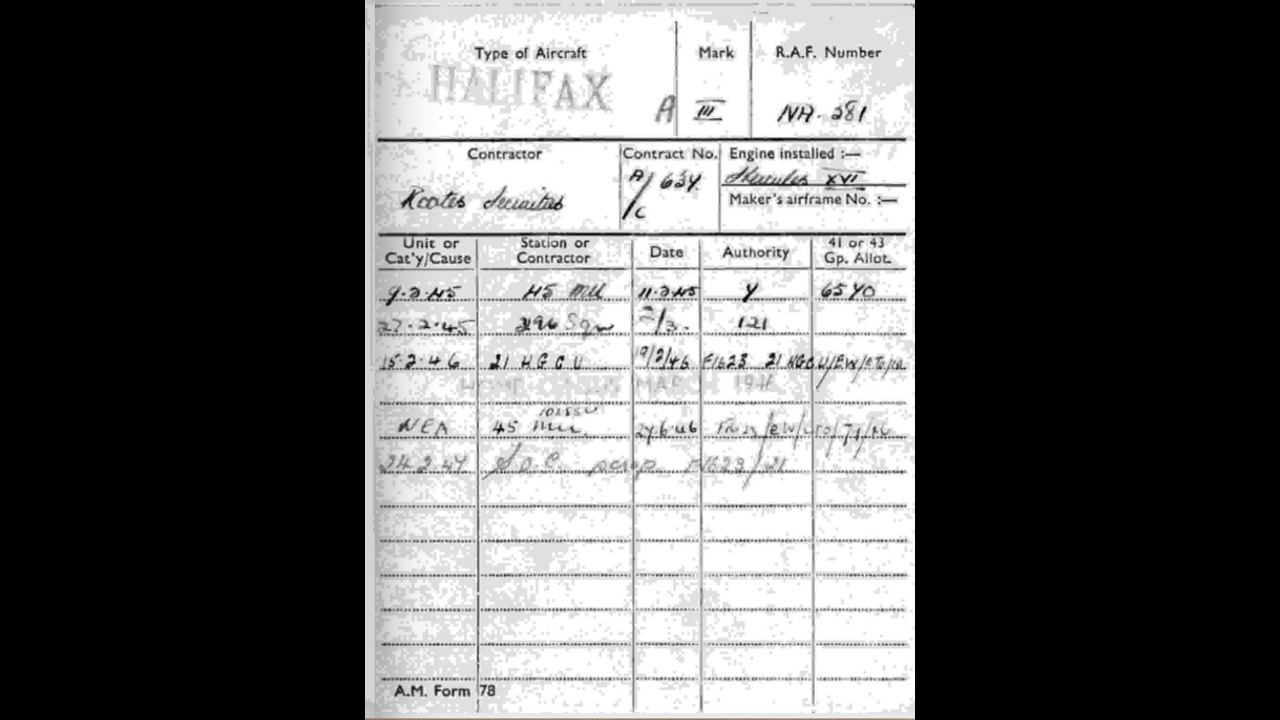 Type of Aircraft Mark R.A.F. Number
HALIFAX A III NA. 281
Contractor Contract No. Engine installed :—
Rootes Securities A/C 637. Hercules XVI
Maker's airframe No. :—
Unit or Cat'y/Cause Station or Contractor Date Authority 41 or 43 Gp. Allot.
9.2.45 45 MU 11.2.45 Y 6540
27.2.45 296 Sqn 2/3. 121
15.2.46 21 H G C U 19/2/46 F1623 21 HGCU/EW/
MAR 194
NEA 45 MU 27.6.46
24.2.47 S.O.C. scrap
A.M. Form 78